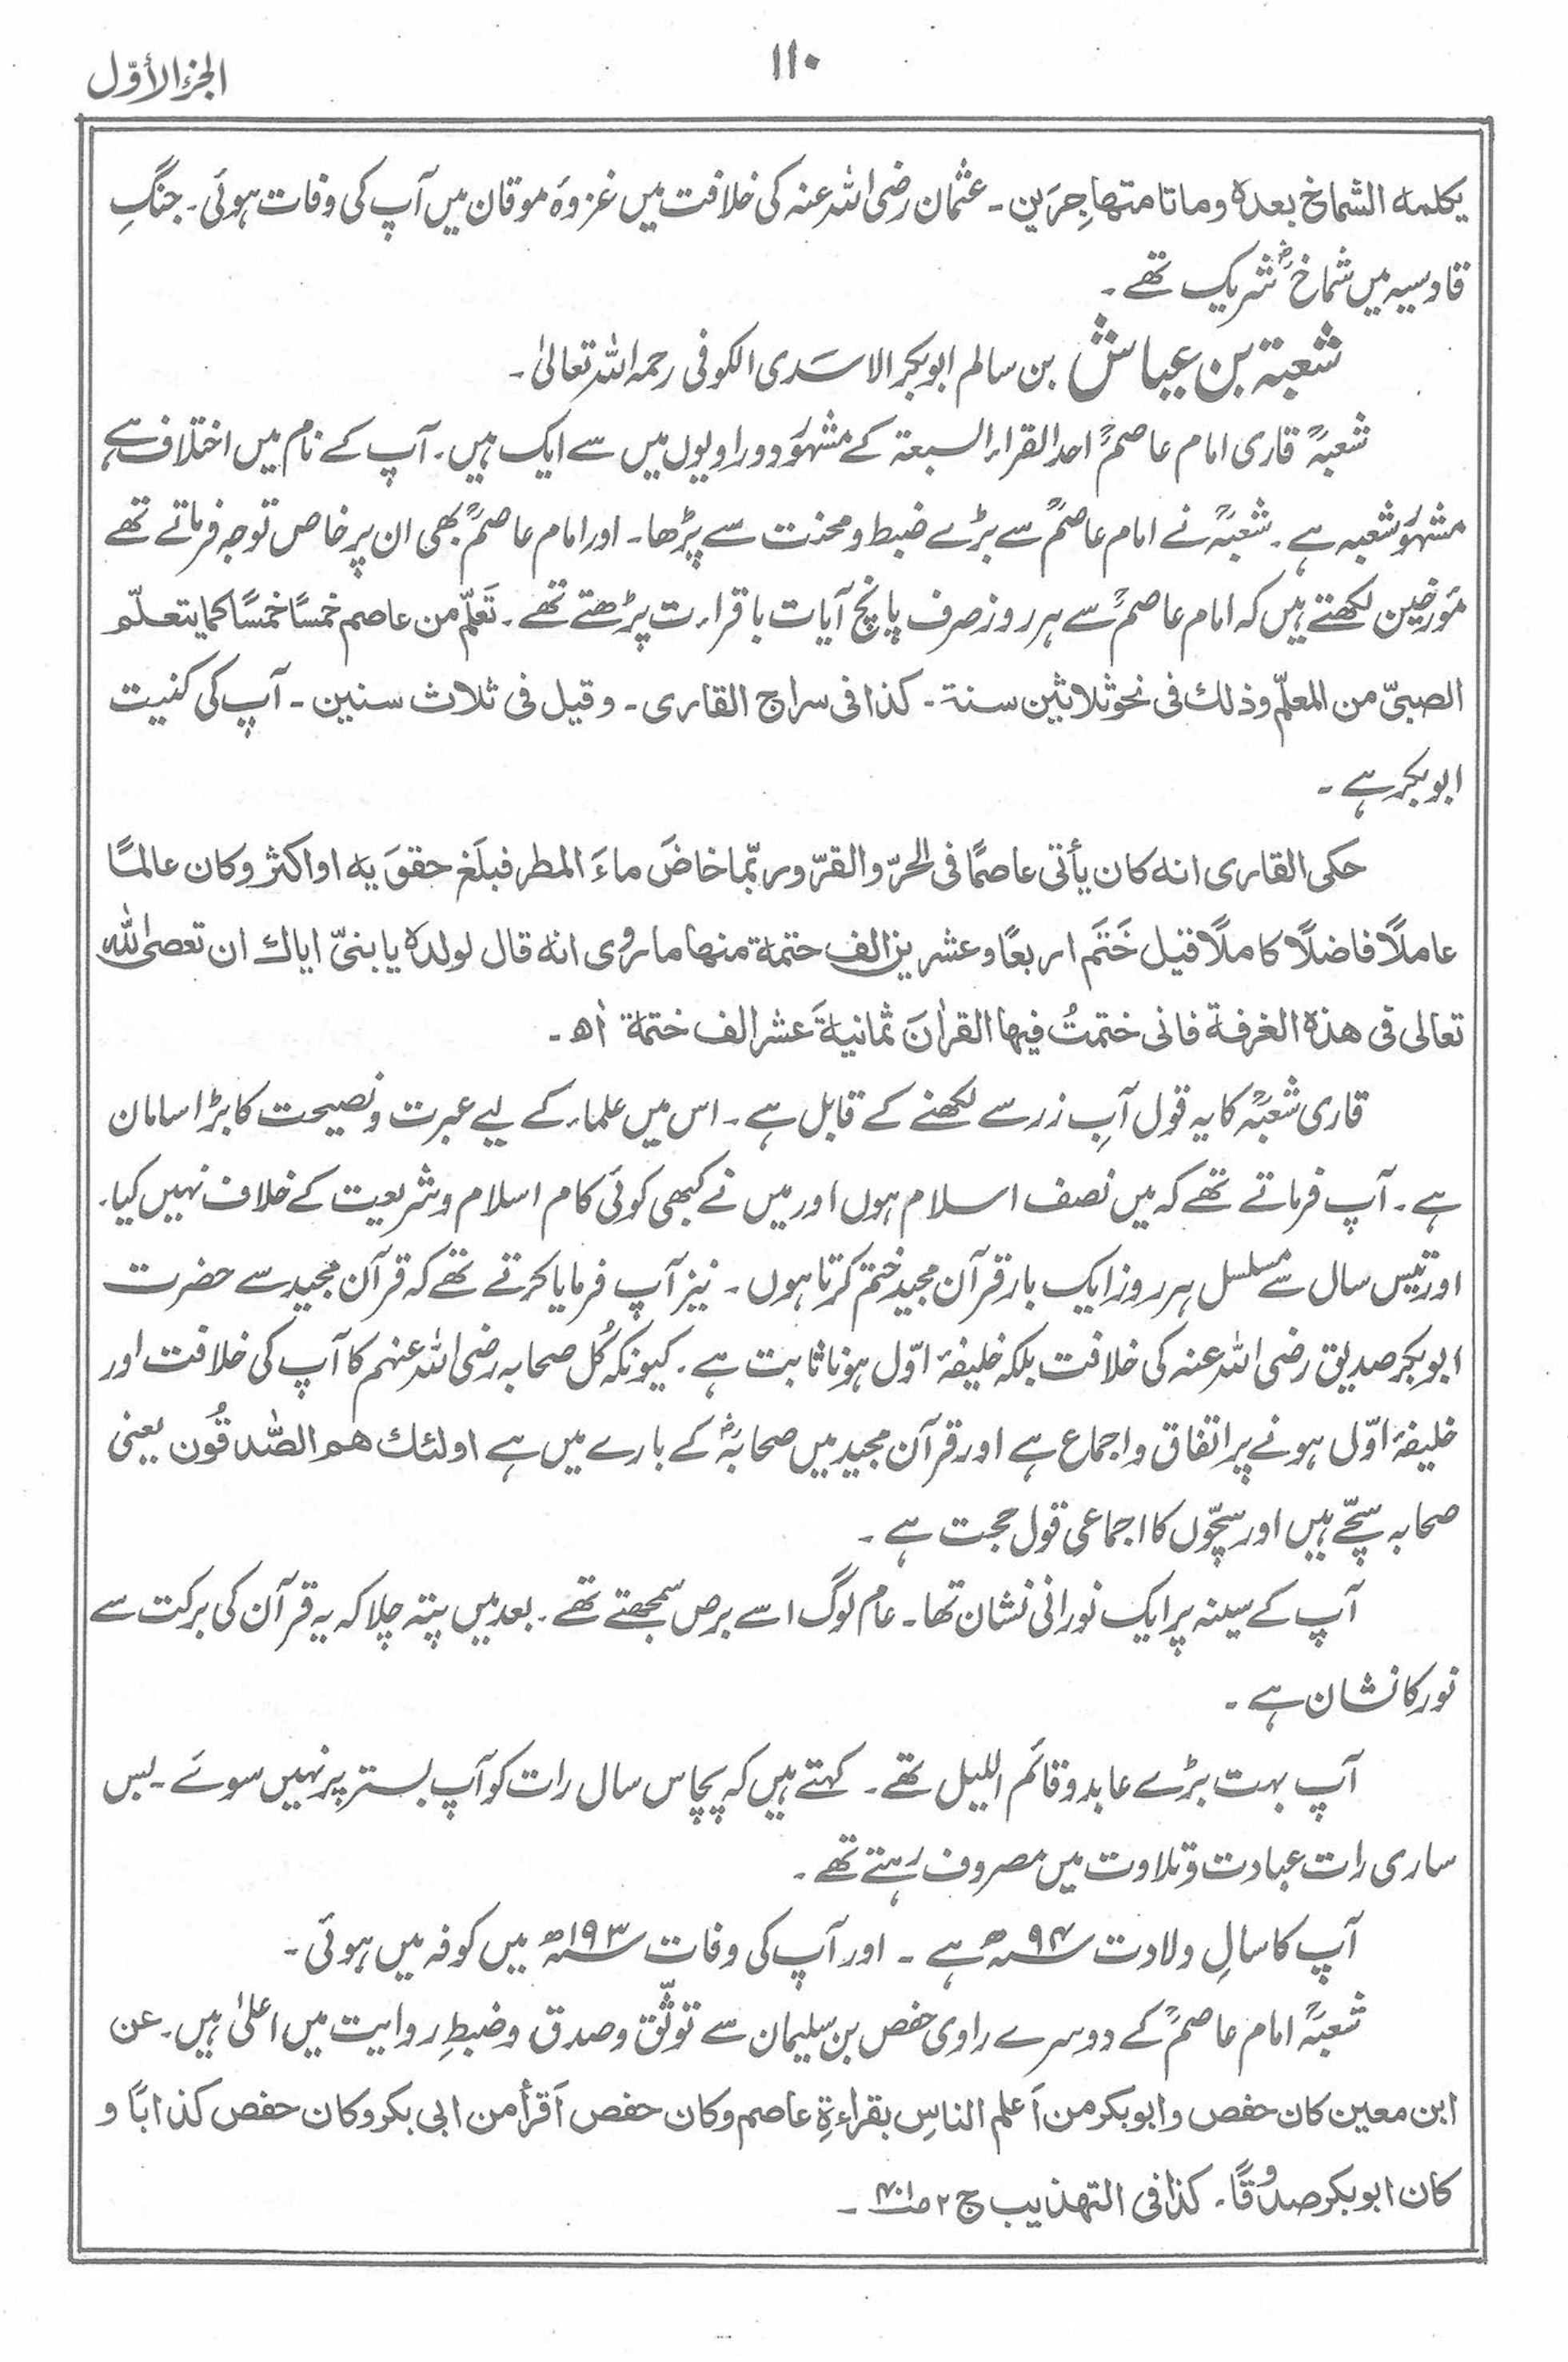 ۱۱۰
الجزء الأوّل
یکلمه الشماخ بعدہ وماتا متھاجِرَین۔ عثمان رضی اللہ عنہ کی خلافت میں غزوۂ موقان میں آپ کی وفات ہوئی۔ جنگِ
قادسیہ میں شماخؓ شریک تھے۔
شعبة بن عیاش بن سالم ابوبکر الاسَدی الکوفی رحمہ اللہ تعالیٰ۔
شعبہؒ قاری امام عاصمؒ احد القراء السبعة کے مشہور دو راویوں میں سے ایک ہیں۔ آپ کے نام میں اختلاف ہے
مشہور شعبہ ہے۔ شعبہؒ نے امام عاصمؒ سے بڑے ضبط ومحنت سے پڑھا۔ اور امام عاصمؒ بھی ان پر خاص توجہ فرماتے تھے
مؤرخین لکھتے ہیں کہ امام عاصمؒ سے ہر روز صرف پانچ آیات باقراءت پڑھتے تھے۔ تَعَلّم من عاصم خمسًا خمسًا کما یتعلّم
الصبیّ من المعلّم وذلك فی نحو ثلاثین سنة۔ کذا فی سراج القاری۔ وقیل فی ثلاث سنین۔ آپ کی کنیت
ابوبکر ہے۔
حکی القاری انه کان یأتی عاصمًا فی الحرّ والقرّ وربّما خاضَ ماءَ المطر فبلَغ حقوَیه او اکثر وکان عالمًا
عاملًا فاضلًا کاملًا قیل خَتَم اربعًا وعشرین الف ختمة منها ما رُوی انه قال لولدہ یا بنیّ ایاك ان تعصی اللّٰہ
تعالی فی هذہ الغرفة فانی ختمتُ فیها القراٰنَ ثمانیةَ عشر الف ختمة اھ۔
قاری شعبہؒ کا یہ قول آبِ زر سے لکھنے کے قابل ہے۔ اس میں علماء کے لیے عبرت ونصیحت کا بڑا سامان
ہے۔ آپ فرماتے تھے کہ میں نصف اسلام ہوں اور میں نے کبھی کوئی کام اسلام وشریعت کے خلاف نہیں کیا۔
اور تیس سال سے مسلسل ہر روز ایک بار قرآن مجید ختم کرتا ہوں۔ نیز آپ فرمایا کرتے تھے کہ قرآن مجید سے حضرت
ابوبکر صدیق رضی اللہ عنہ کی خلافت بلکہ خلیفۂ اوّل ہونا ثابت ہے۔ کیونکہ کُل صحابہ رضی اللہ عنہم کا آپ کی خلافت اور
خلیفۂ اوّل ہونے پر اتفاق واجماع ہے اور قرآن مجید میں صحابہؓ کے بارے میں ہے اولئك هم الصّٰدقُون یعنی
صحابہ سچّے ہیں اور سچّوں کا اجماعی قول حجت ہے۔
آپ کے سینہ پر ایک نورانی نشان تھا۔ عام لوگ اسے برص سمجھتے تھے۔ بعد میں پتہ چلا کہ یہ قرآن کی برکت سے
نور کا نشان ہے۔
آپ بہت بڑے عابد وقائم اللیل تھے۔ کہتے ہیں کہ پچاس سال رات کو آپ بستر پر نہیں سوئے۔ بس
ساری رات عبادت وتلاوت میں مصروف رہتے تھے۔
آپ کا سالِ ولادت سنہ ۹۴ھ ہے۔ اور آپ کی وفات سنہ ۱۹۳ھ میں کوفہ میں ہوئی۔
شعبہؒ امام عاصمؒ کے دوسرے راوی حفص بن سلیمان سے توثّق وصدق وضبطِ روایت میں اعلیٰ ہیں۔ عن
ابن معین کان حفص وابوبکر من اَعلم الناسِ بقراءةِ عاصم وکان حفص اَقرأ من ابی بکر وکان حفص کذابًا و
کان ابوبکر صدُوقًا۔ کذا فی التهذیب ج ۲ ص ۴۰۱۔